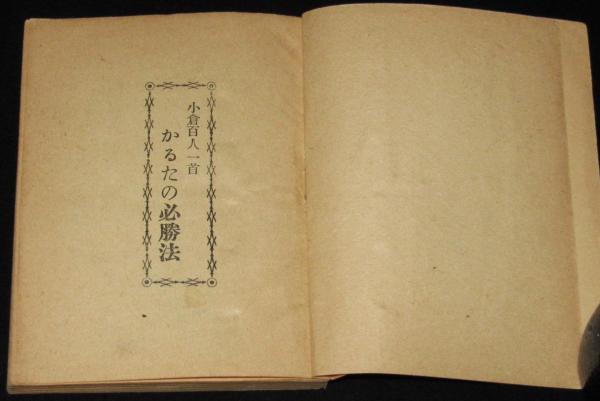 小倉百人一首
かるたの必勝法